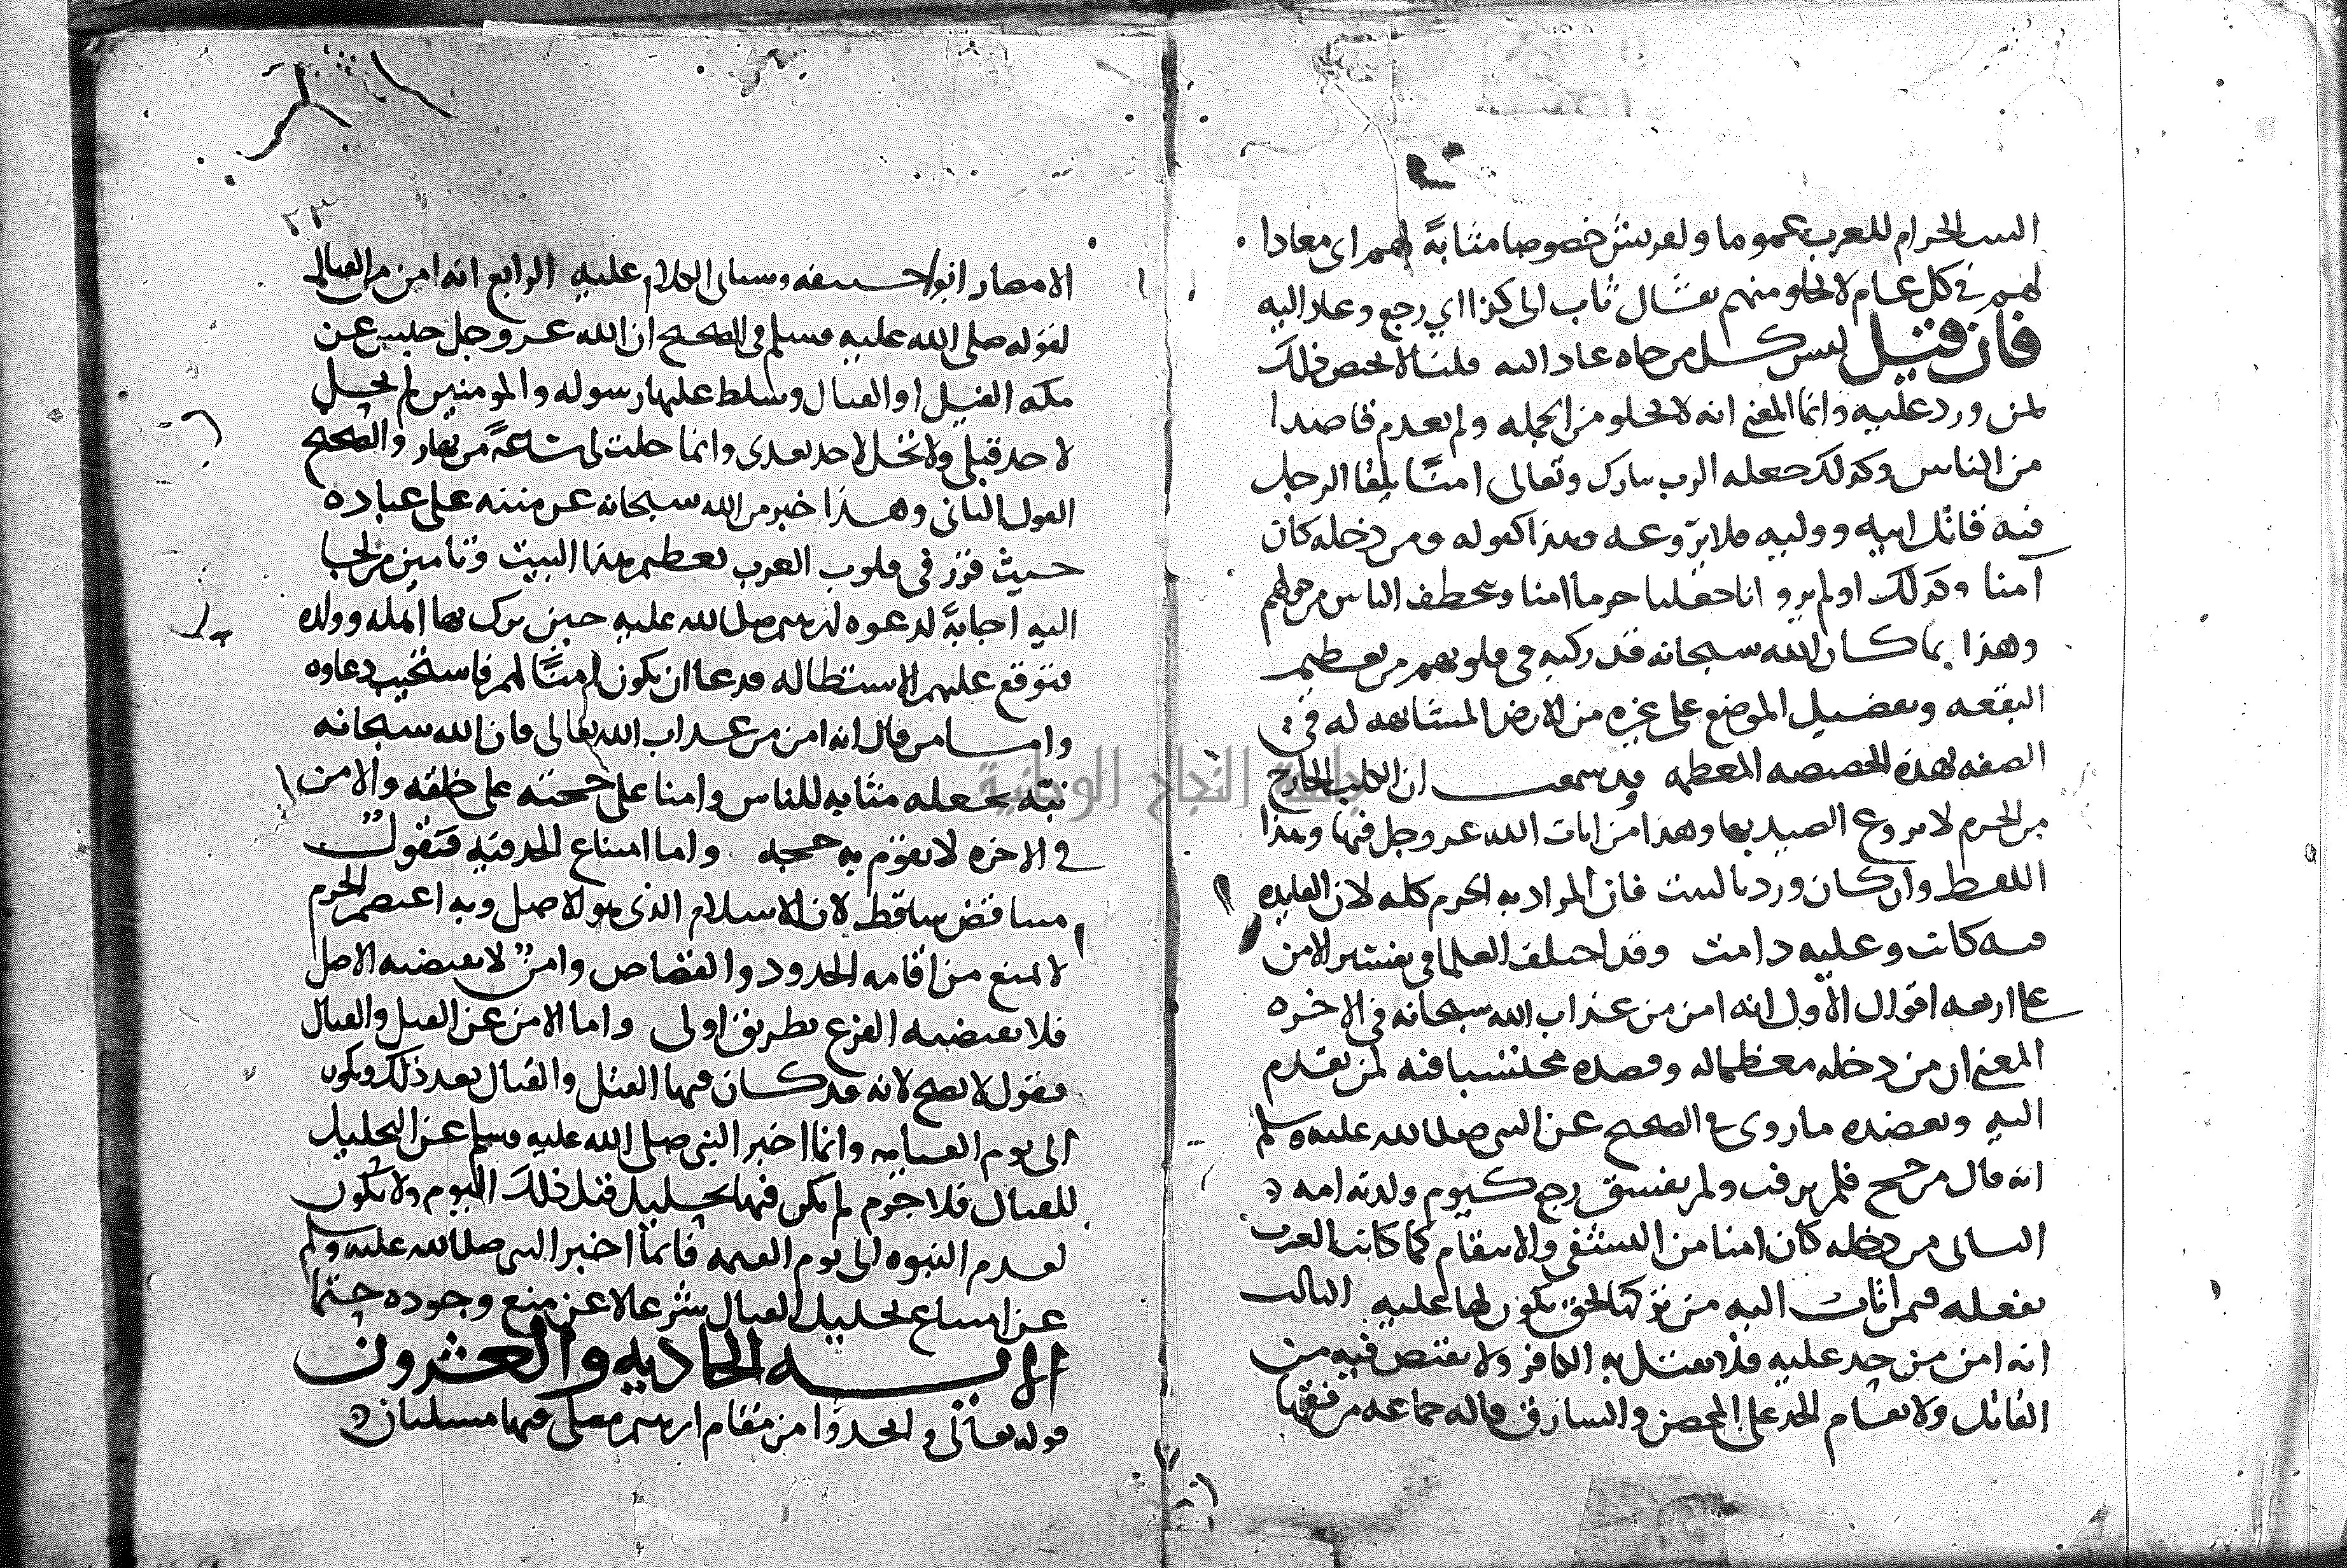 البيت الحرام للعرب عموما ولقريش خصوصا مثابةً لهم اى معادا
لهم في كل عام لا تخلو منهم يقال ثاب الى كذا اي رجع وعاد اليه
فان قيل ليس كل من جاه عاد اليه قلنا لا يختص ذلك
بمن ورد عليه وانما المعنى انه لا يخلو من الجمله ولم يعدم قاصدا
من الناس وكذلك جعله الرب تبارك وتعالى امنًا يلقا الرجل
فيه قاتل ابيه ووليه فلا يروعه وهذا كقوله ومن دخله كان
آمنا وكذلك اولم يروا انا جعلنا حرما امنا ويتخطف الناس من حولهم
وهذا بما كان الله سبحانه قد ركبه في قلوبهم من تعظيم
البقعه وتفضيل الموضع على غيره من الارض المشابهه له في
الصفه بهذه الخصيصه المعظمه وقد سمعت ان الكلب الخارج
من الحرم لا يروع الصيد بها وهذا من ايات الله عز وجل فيها وهذا
اللفظ وان كان ورد بالبيت فان المراد به الحرم كله لان الفايده
فيه كانت وعليه دامت وقد اختلف العلما في تفسير الامن
على اربعه اقوال الاول انه امن من عذاب الله سبحانه في الاخره
المعنى ان من دخله معظما له وقصده محتسبا فيه لمن تقدم
اليه ويعضده ما روى في الصحيح عن النبي صلى الله عليه وسلم
انه قال من حج فلم يرفث ولم يفسق رجع كيوم ولدته امه
الثانى من دخله كان امنا من التشفى والانتقام كما كانت العرب
تفعله فيمن اناب اليه من تركها لحق يكون لها عليه الثالث
انه امن من حد عليه فلا يقتل به الكافر ولا يقتص فيه من
القاتل ولا يقام الحد على المحصن والسارق قاله جماعه من فقها
٢٣
الامصار ابو حنيفه وسياتى الكلام عليه الرابع انه امن من القتال
لقوله صلى الله عليه وسلم في الصحيح ان الله عز وجل حبس عن
مكه الفيل او القتال وسلط عليها رسوله والمومنين لم تحل
لاحد قبلى ولا تحل لاحد بعدى وانما حلت لى ساعةً من نهار والصحيح
القول الثانى وهذا خبر من الله سبحانه عن منته على عباده
حيث قرر في قلوب العرب تعظيم هذا البيت وتامين من لجا
اليه اجابةً لدعوه ابرهيم صلى الله عليه حين ترك بها اهله وولده
فتوقع عليهم الاستطاله فدعا ان يكون امنًا لهم فاستجيب دعاوه
واما من قال انه امن من عذاب الله تعالى فان الله سبحانه
نبّه بجعله مثابه للناس وامنا على حجته على خلقه والامن
في الاخره لا تقوم به حجه واما امتناع الحد فيه فقول
متناقض ساقط لان الاسلام الذى هو الاصل وبه اعتصم الحرم
لا يمنع من اقامه الحدود والقصاص وامرٌ لا يقتضيه الاصل
فلا يقتضيه الفرع بطريق اولى واما الامن عن القتل والقتال
فقول لا يصح لانه قد كان فيها القتل والقتال بعد ذلك ويكون
الى يوم القيامه وانما اخبر النبى صلى الله عليه وسلم عن التحليل
للقتال فلا جرم لم يكن فيها تحليل قبل ذلك اليوم ولا يكون
لعدم النبوه الى يوم القيمه فانما اخبر النبى صلى الله عليه وسلم
عن امتناع تحليل القتال شرعا لا عن منع وجوده حتما
الايه الحاديه والعشرون
قوله تعالى واتخذوا من مقام ابرهيم مصلى فيها مسلتان
جامعة النجاح الوطنية